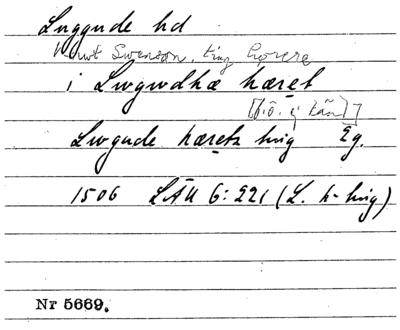 Luggude hd
Knut Swenson, ting hørere
i Lwgwdhæ hæret
[f.ö. i kän]
Lwgude hæretz ting 2g.
1506 LÄU 6:221 (L. h-ting)
Nr 5669.